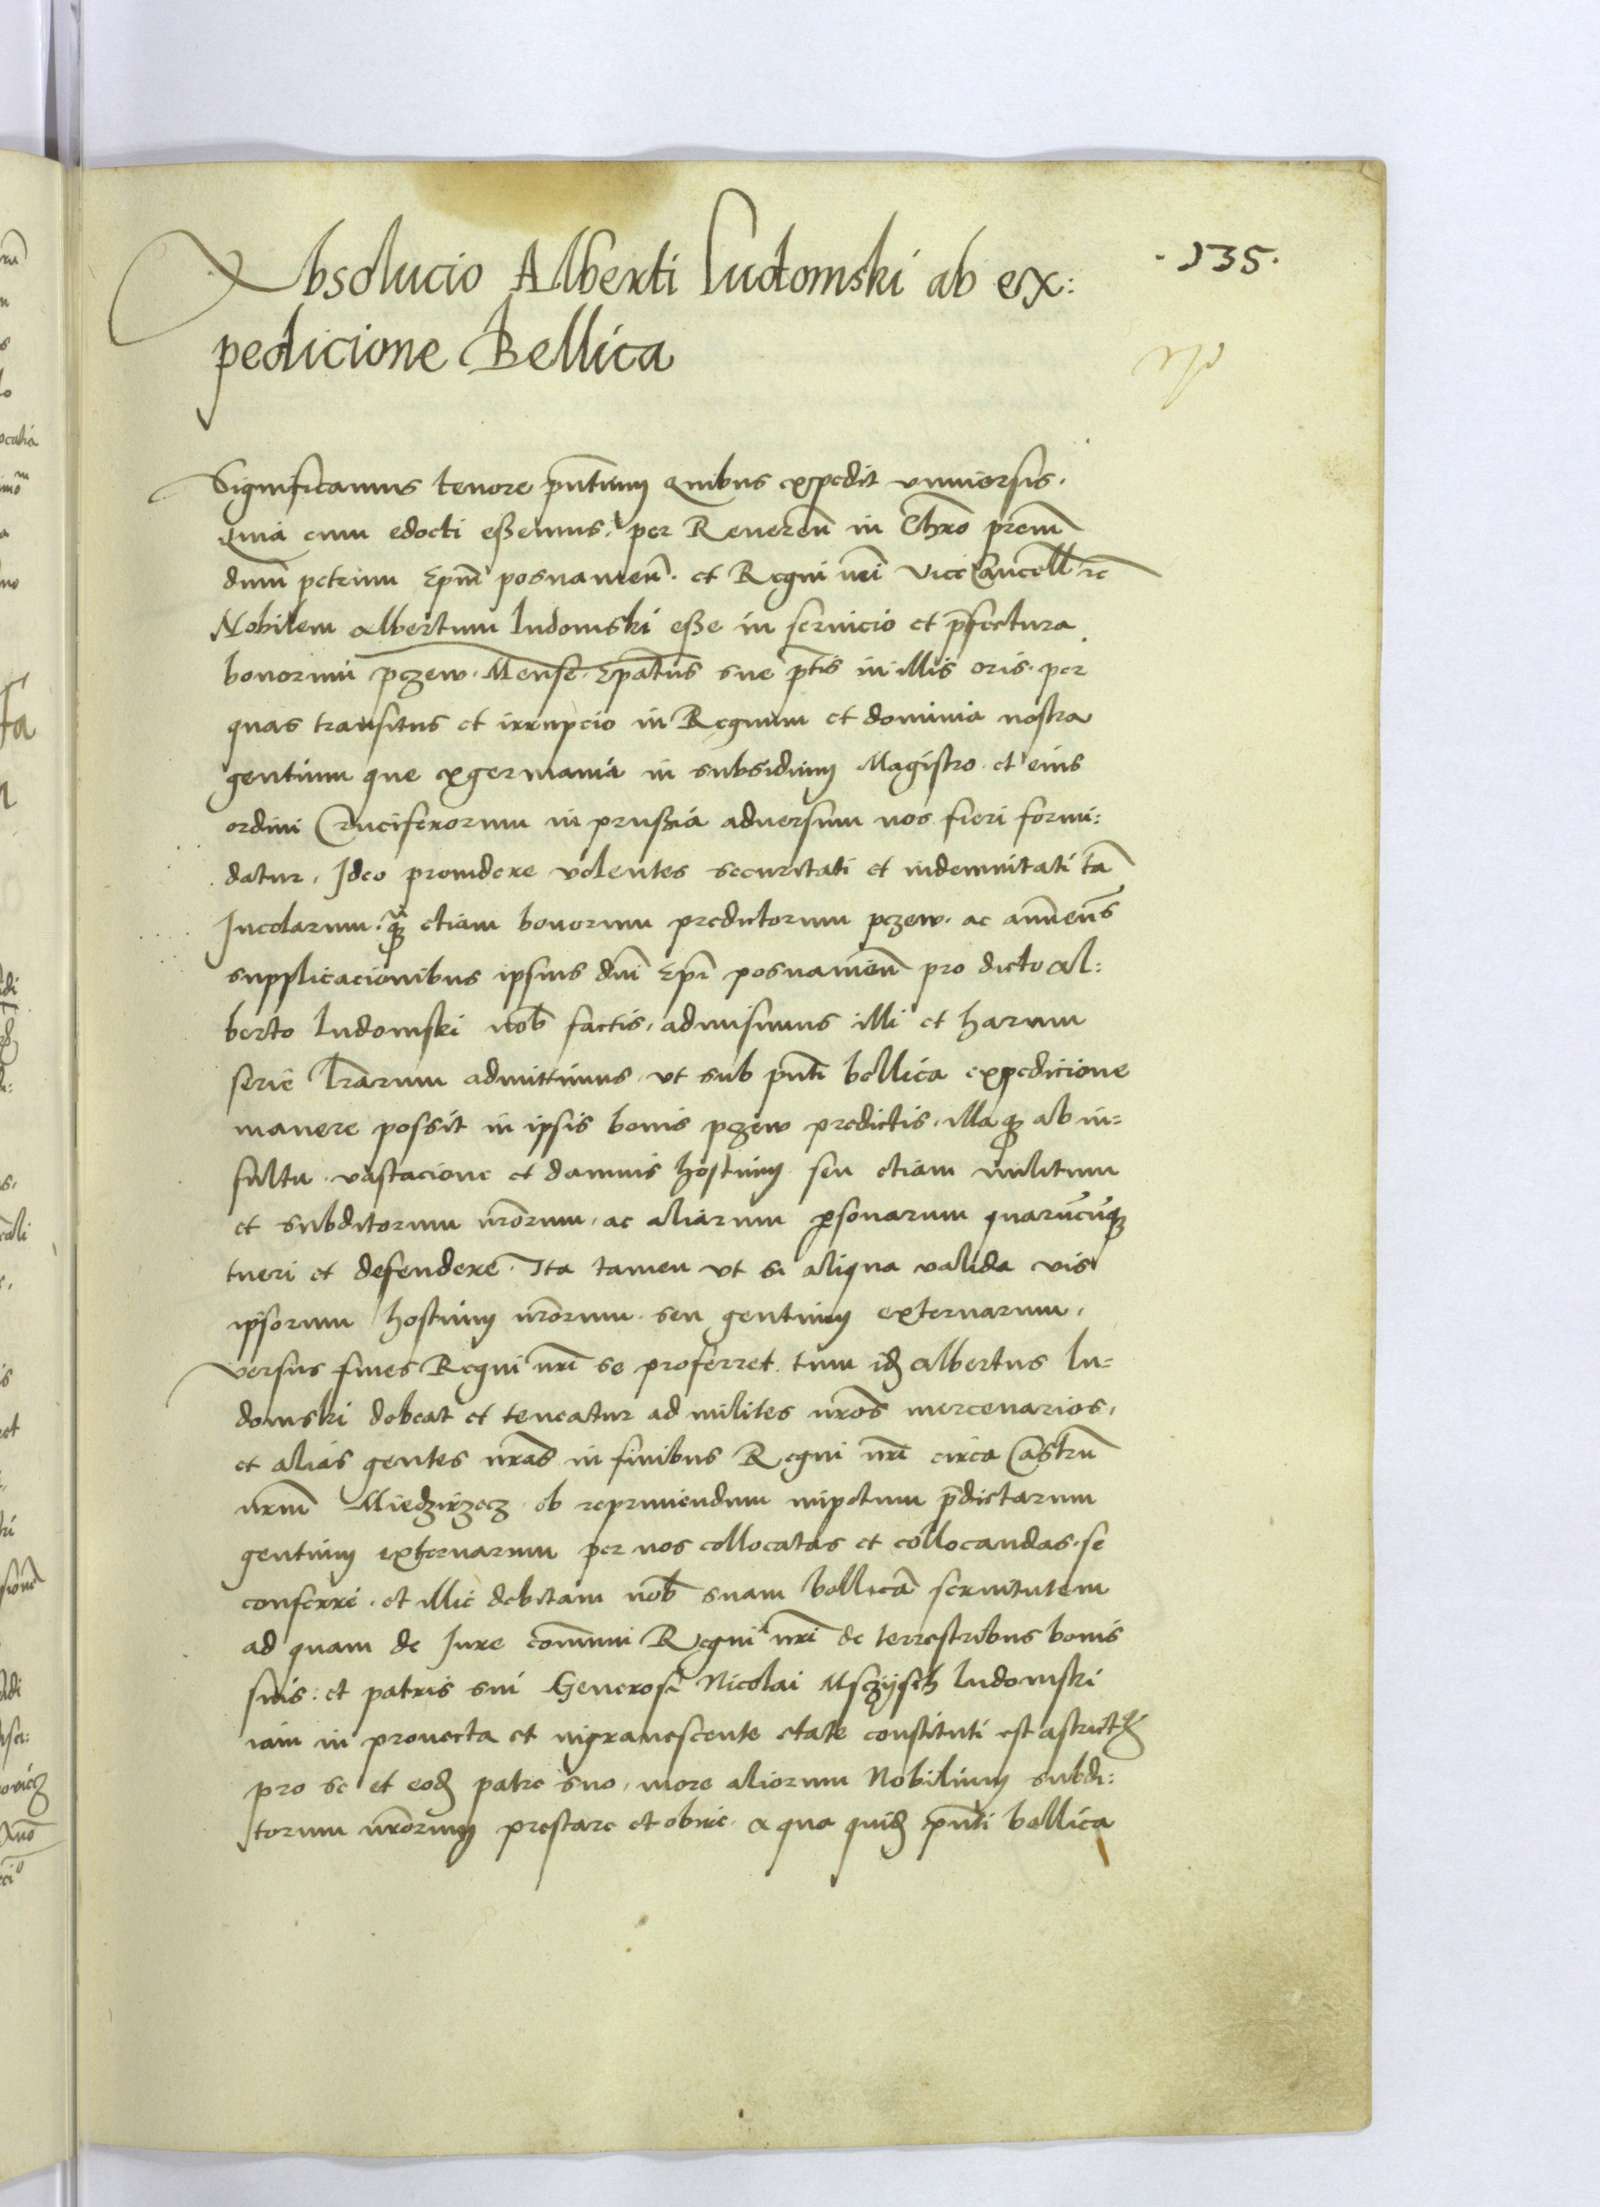 .135.
Absolucio Alberti Ludomski ab ex:
pedicione Bellica
Significamus tenore pntium Quibus expedit vniuersis.
Quia cum edocti essemus. per Reueren̄ in Chro̅ prem̅
dnm̅ petrum Epm̅ posnanien̄. et Regni nr̅i vice Cancell̅ rc̅
Nobilem albertum ludomski esse in seruicio et p̅fectura
bonorum pczew. Mense. Ep̅atus sue p̅tis in illis oris. per
quas transitus et irrupcio in Regnum et dominia nostra
gentium que ex germania in subsidium Magistro et eius
ordini Cruciferorum in prussia aduersum nos fieri formi:
datur. Ideo prouidere volentes securitati et indemnitati ta̅
Incolarum. q̃ꝫ etiam bonorum predictorum pczew. ac annuen̅s
supplicacionibus ipsius dni̅ Epi̅ posnanien̄ pro dicto al:
berto ludomski nob̅ factis, admisimus illi et harum
serie lr̅arum admittimus. vt sub pn̅ti bellica expedicione
manere possit in ipsis bonis pczew predictis. illaqꝫ ab in=
sultu. vastacione et damnis hostium seu etiam militum
et subditorum nr̅orum. ac aliarum ꝑsonarum quarūcūqꝫ
tueri et defendere. Ita tamen vt si aliqua valida vis
ipsorum hostium nr̅orum. seu gentium externarum.
versus fines Regni nr̅i se proferret. tum idꝫ albertus lu=
domski debeat et teneatur ad milites nr̅os mercenarios,
et alias gentes nr̅as in finibus Regni nr̅i circa Castru̅
nr̅m Miedzirzecz ob reprimendum impetum p̅dictarum
gentium externarum per nos collocatas et collocandas. se
conferre. et illic debitam nob̅ suam bellica̅ seruitutem
ad quam de Jure com̅uni Regni nr̅i de terrestribus bonis
suis: et patris sui Generosi Nicolai Msczysch ludomski
iam in prouecta et ingrauescente etate constituti est astrict9
pro se et eodꝫ patre suo. more aliorum Nobilium subdi:
torum nr̅orum prestare et obire. a qua quidꝫ pn̅ti bellica